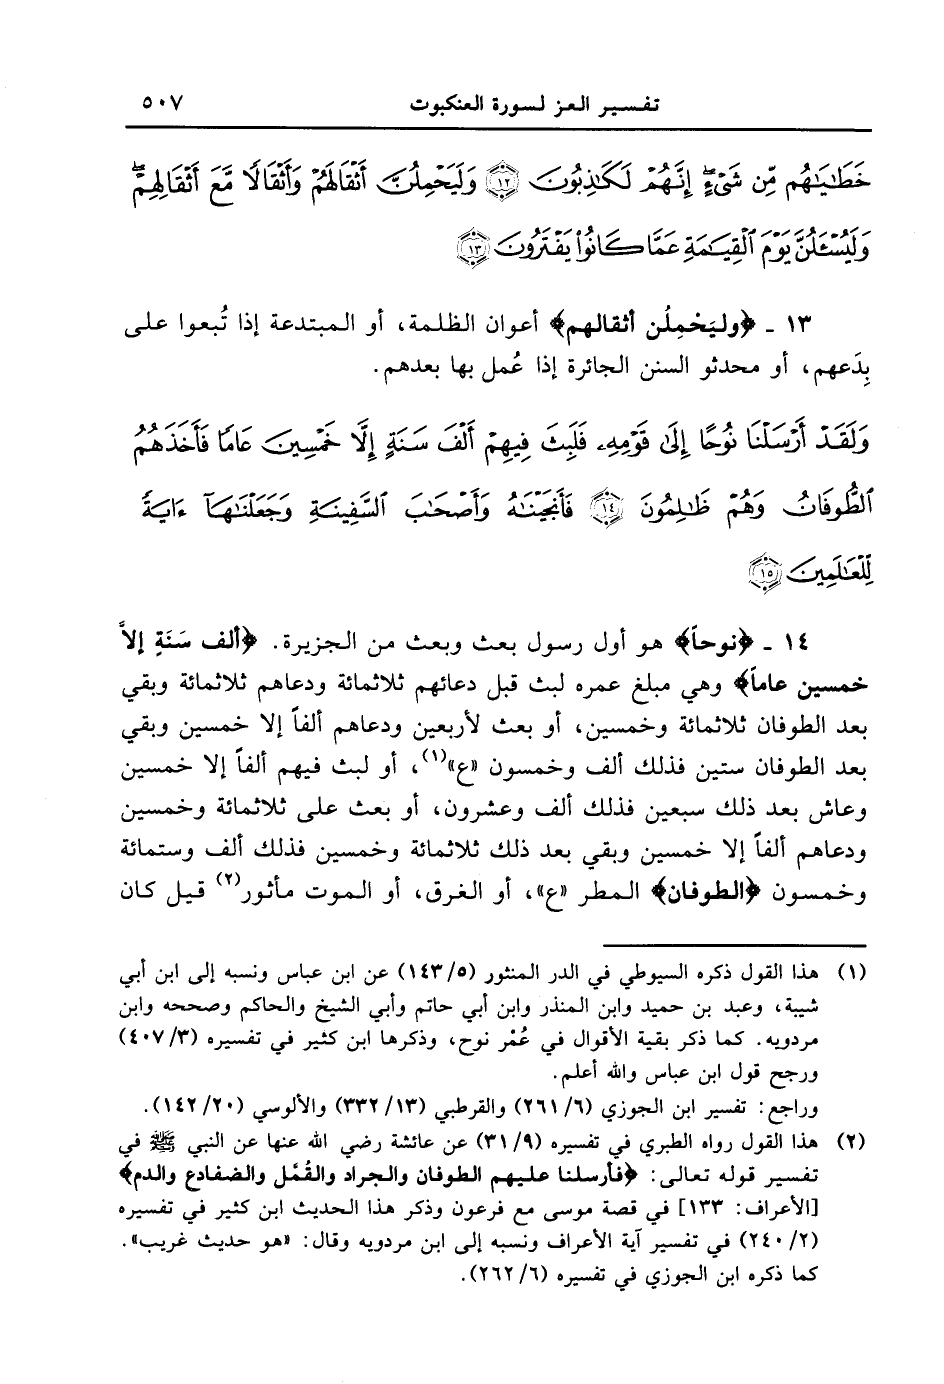 تفسير العز لسورة العنكبوت ٥٠٧
خَطَٰيَٰهُم مِّن شَىْءٍ ۖ إِنَّهُمْ لَكَٰذِبُونَ ١٢ وَلَيَحْمِلُنَّ أَثْقَالَهُمْ وَأَثْقَالًا مَّعَ أَثْقَالِهِمْ ۖ
وَلَيُسْـَٔلُنَّ يَوْمَ ٱلْقِيَٰمَةِ عَمَّا كَانُوا۟ يَفْتَرُونَ ١٣
١٣ ـ ﴿وليَحْمِلُن أثقالهم﴾ أعوان الظلمة، أو المبتدعة إذا تُبعوا على
بِدَعهم، أو محدثو السنن الجائرة إذا عُمل بها بعدهم.
وَلَقَدْ أَرْسَلْنَا نُوحًا إِلَىٰ قَوْمِهِۦ فَلَبِثَ فِيهِمْ أَلْفَ سَنَةٍ إِلَّا خَمْسِينَ عَامًا فَأَخَذَهُمُ
ٱلطُّوفَانُ وَهُمْ ظَٰلِمُونَ ١٤ فَأَنجَيْنَٰهُ وَأَصْحَٰبَ ٱلسَّفِينَةِ وَجَعَلْنَٰهَآ ءَايَةً
لِّلْعَٰلَمِينَ ١٥
١٤ ـ ﴿نوحاً﴾ هو أول رسول بعث وبعث من الجزيرة. ﴿ألف سَنَةٍ إلاَّ
خمسين عاماً﴾ وهي مبلغ عمره لبث قبل دعائهم ثلاثمائة ودعاهم ثلاثمائة وبقي
بعد الطوفان ثلاثمائة وخمسين، أو بعث لأربعين ودعاهم ألفاً إلا خمسين وبقي
بعد الطوفان ستين فذلك ألف وخمسون «ع»(١)، أو لبث فيهم ألفاً إلا خمسين
وعاش بعد ذلك سبعين فذلك ألف وعشرون، أو بعث على ثلاثمائة وخمسين
ودعاهم ألفاً إلا خمسين وبقي بعد ذلك ثلاثمائة وخمسين فذلك ألف وستمائة
وخمسون ﴿الطوفان﴾ المطر «ع»، أو الغرق، أو الموت مأثور(٢) قيل كان
(١) هذا القول ذكره السيوطي في الدر المنثور (١٤٣/٥) عن ابن عباس ونسبه إلى ابن أبي
شيبة، وعبد بن حميد وابن المنذر وابن أبي حاتم وأبي الشيخ والحاكم وصححه وابن
مردويه. كما ذكر بقية الأقوال في عُمْر نوح، وذكرها ابن كثير في تفسيره (٤٠٧/٣)
ورجح قول ابن عباس والله أعلم.
وراجع: تفسير ابن الجوزي (٢٦١/٦) والقرطبي (٣٣٢/١٣) والألوسي (١٤٢/٢٠).
(٢) هذا القول رواه الطبري في تفسيره (٣١/٩) عن عائشة رضي الله عنها عن النبي ﷺ في
تفسير قوله تعالى: ﴿فأرسلنا عليهم الطوفان والجراد والقُمَّل والضفادع والدم﴾
[الأعراف: ١٣٣] في قصة موسى مع فرعون وذكر هذا الحديث ابن كثير في تفسيره
(٢٤٠/٢) في تفسير آية الأعراف ونسبه إلى ابن مردويه وقال: «هو حديث غريب».
كما ذكره ابن الجوزي في تفسيره (٢٦٢/٦).